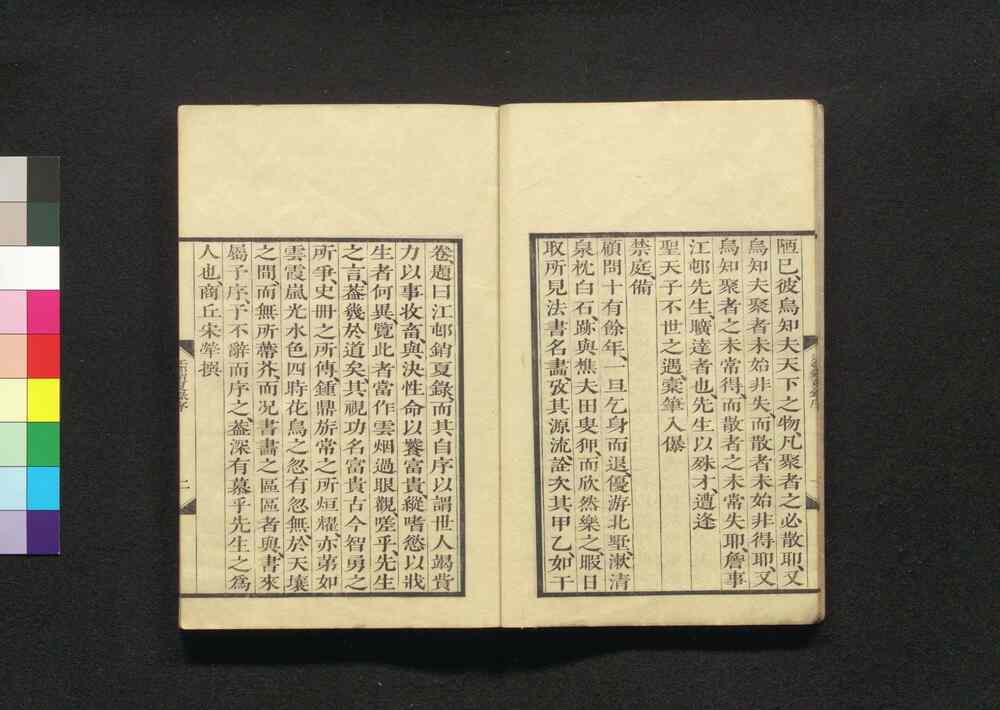 陋已、彼烏知夫天下之物、凡聚者之必散耶、又
烏知夫聚者未始非失、而散者未始非得耶、又
烏知聚者之未常得、而散者之未常失耶、詹事
江邨先生、曠達者也、先生以殊才遭逢
聖天子不世之遇、橐筆入𠎝
禁庭、備
顧問十有餘年、一旦乞身而退、優游北墅、漱清
泉枕白石、跡與樵夫田叟狎、而欣然樂之、暇日
取所見法書名畫、攷其源流、詮次其甲乙、如干
卷、題曰江邨銷夏錄、而其自序以謂世人竭貲
力以事收畜、與決性命以饕富貴、縱嗜慾以戕
生者何異、覽此者當作雲烟過眼觀、嗟乎、先生
之言、葢幾於道矣、其視功名富貴古今智勇之
所爭史册之所傳、鍾鼎旂常之所烜耀、亦苐如
雲霞嵐光水色四時花鳥之忽有忽無、於天壤
之間、而無所蔕芥、而况書畫之區區者與、書來
屬予序、予不辭而序之、葢深有慕乎先生之為
人也、商丘宋犖撰
二